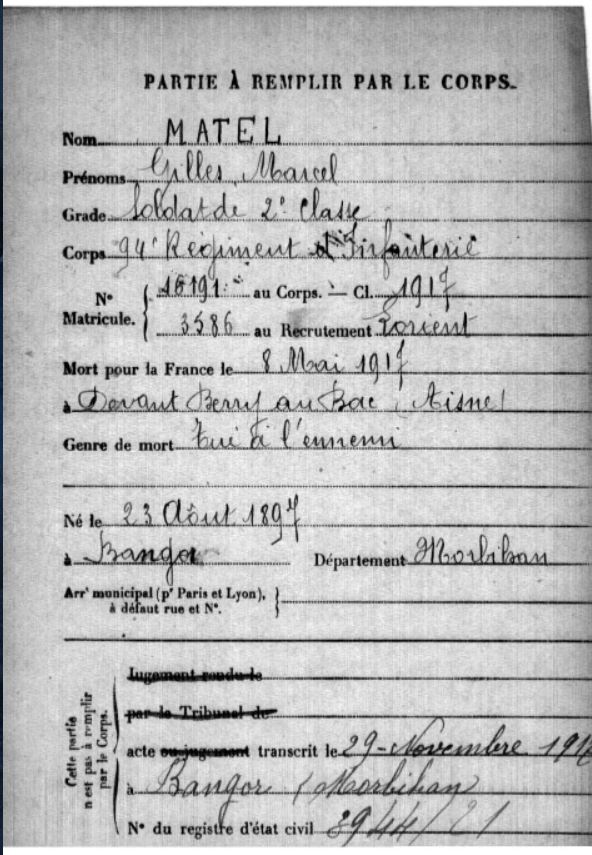 PARTIE À REMPLIR PAR LE CORPS.
Nom MATEL
Prénoms Gilles Marcel
Grade Soldat de 2e Classe
Corps 94e Régiment d'Infanterie
N° Matricule. { 16191 au Corps. — Cl. 1917
3586 au Recrutement Lorient
Mort pour la France le 8 Mai 1917
à Devant Berry au Bac (Aisne)
Genre de mort Tué à l'ennemi
Né le 23 Août 1897
à Bangor Département Morbihan
Arrt municipal (pr Paris et Lyon), }
à défaut rue et N°.
Cette partie n'est pas à remplir par le Corps.
Jugement rendu le
par le Tribunal de
acte ou jugement transcrit le 29 - Novembre
à Bangor (Morbihan)
N° du registre d'état civil 3944/21